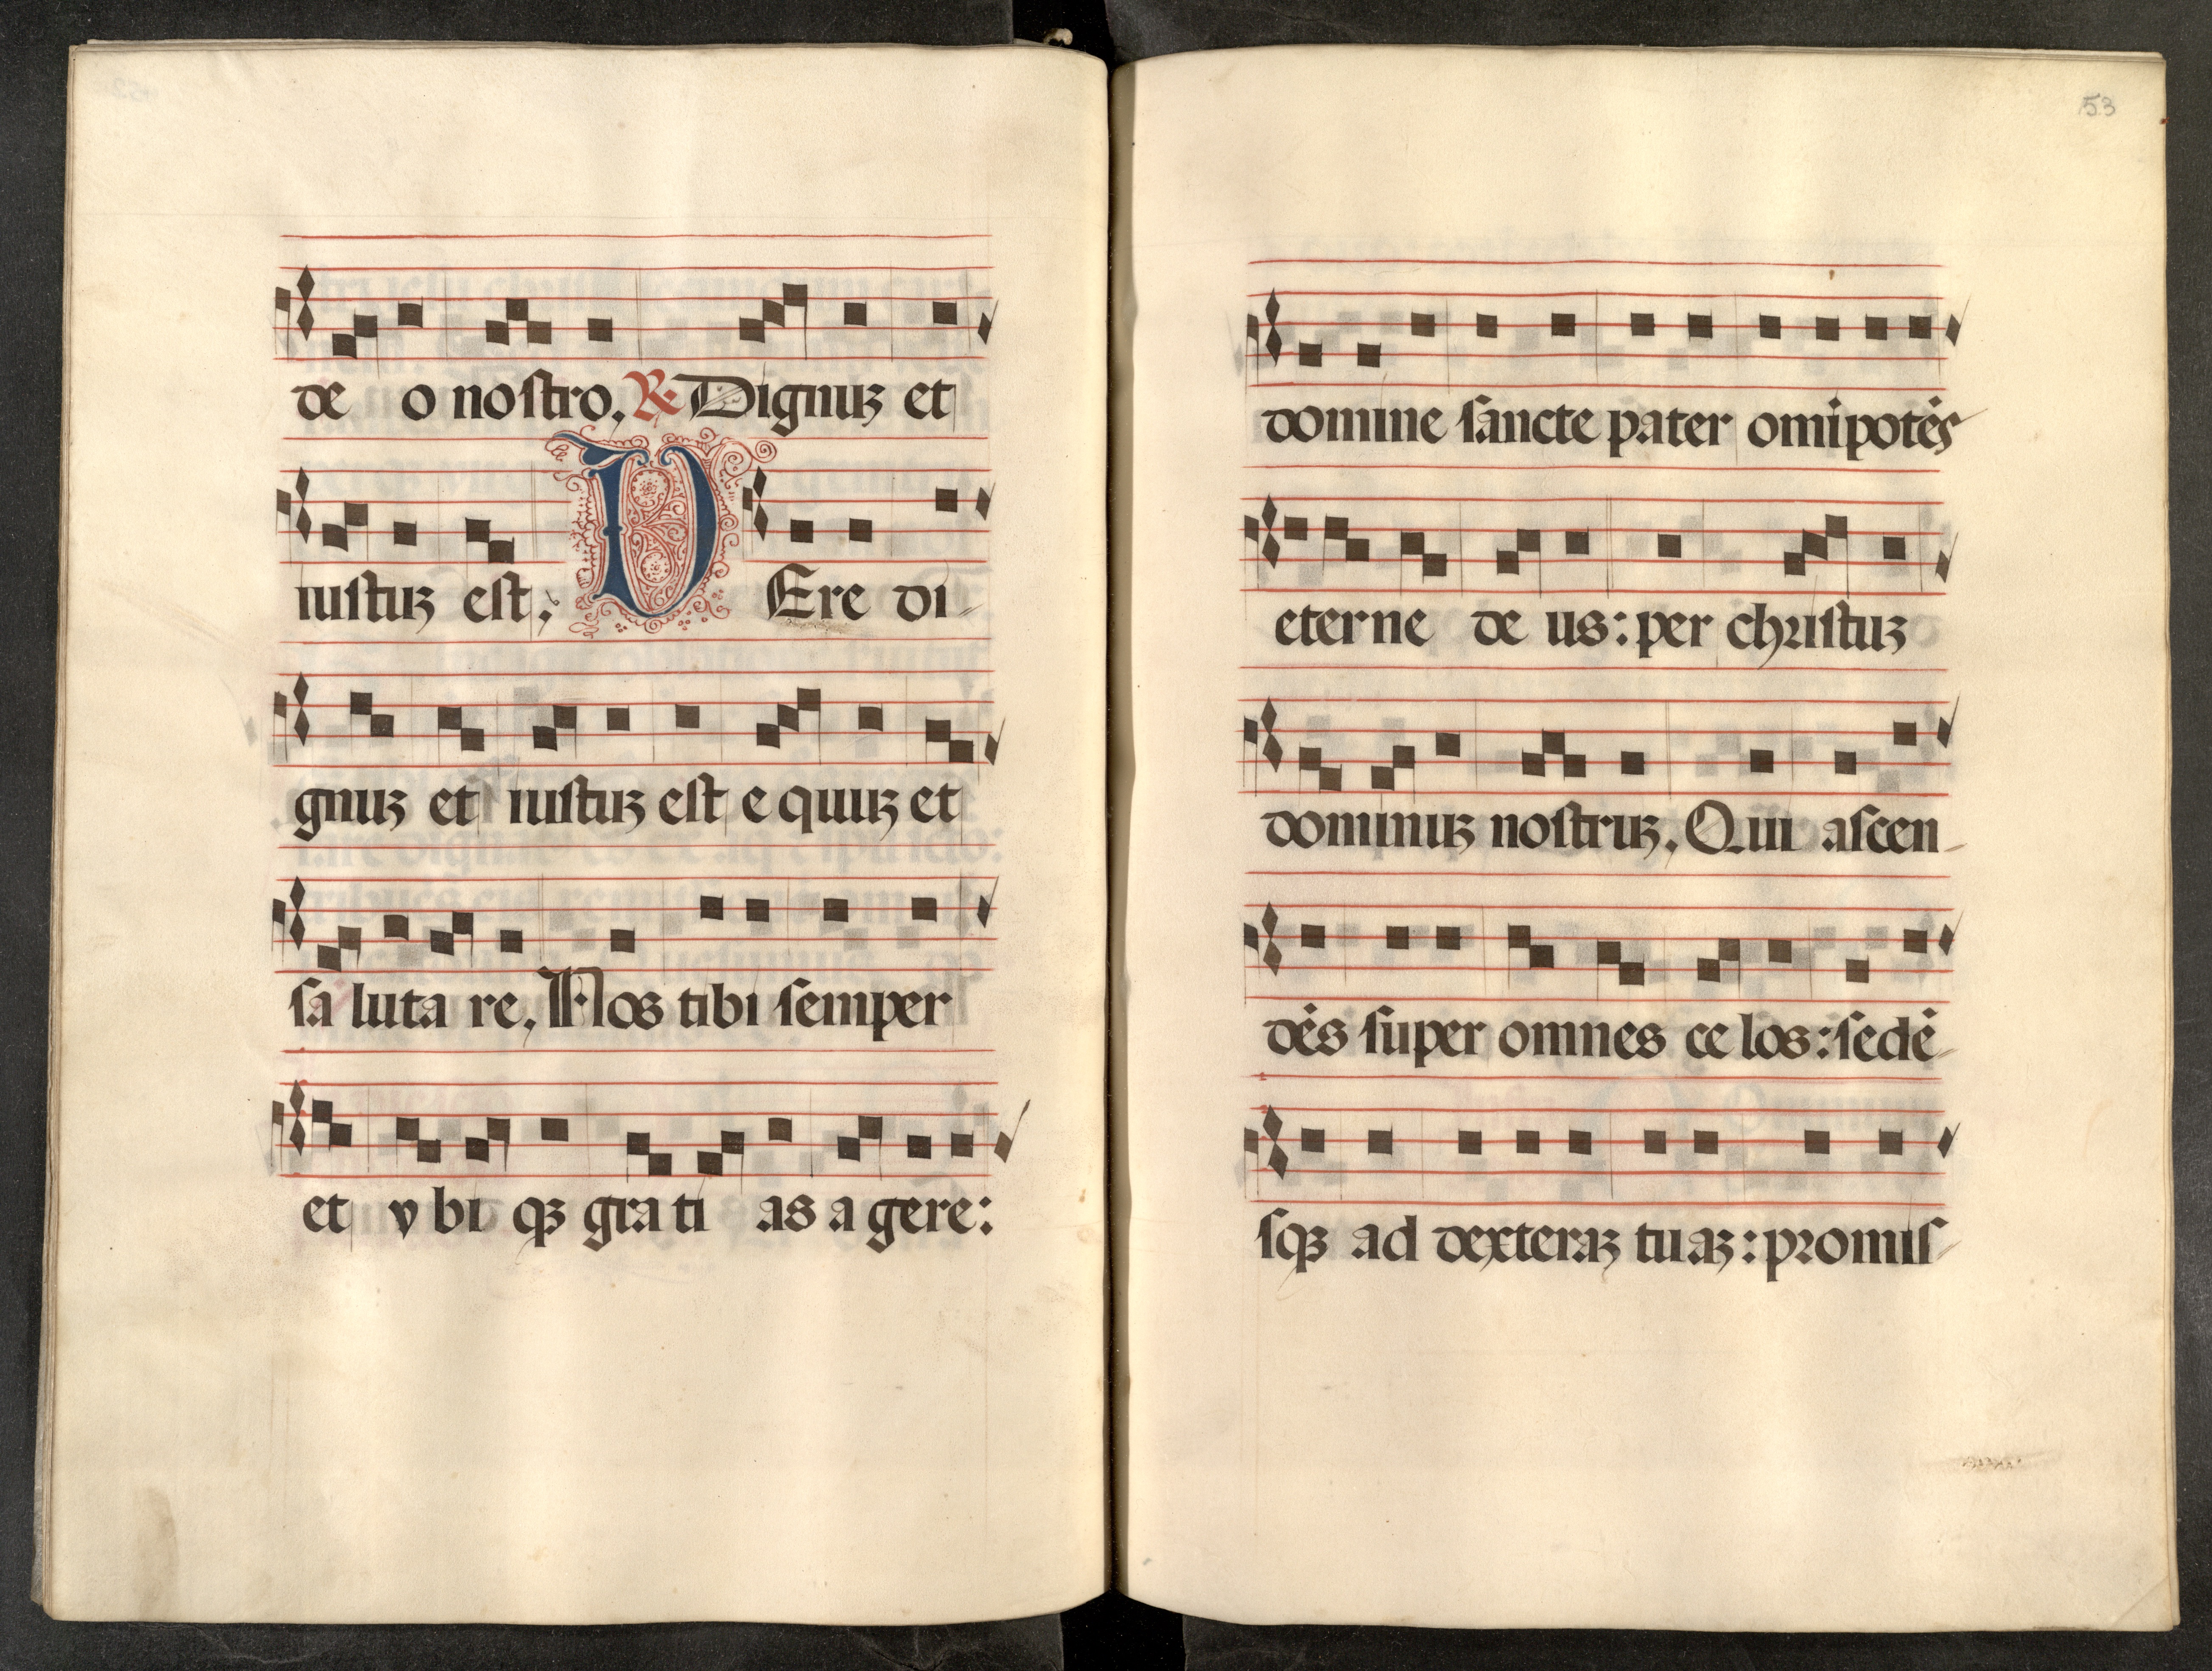 de o nostro. ℟ Dignuꝫ et
iustuꝫ est. VEre di-
gnuꝫ et iustuꝫ est e quuꝫ et
sa luta re. Nos tibi semper
et v bi qꝫ gra ti as a gere:
53
domine sancte pater omīpotēs
eterne de us: per christuꝫ
dominuꝫ nostruꝫ. Qui ascen-
dēs super omnes ce los: sedē-
sqꝫ ad dexteraꝫ tuaꝫ: promis-